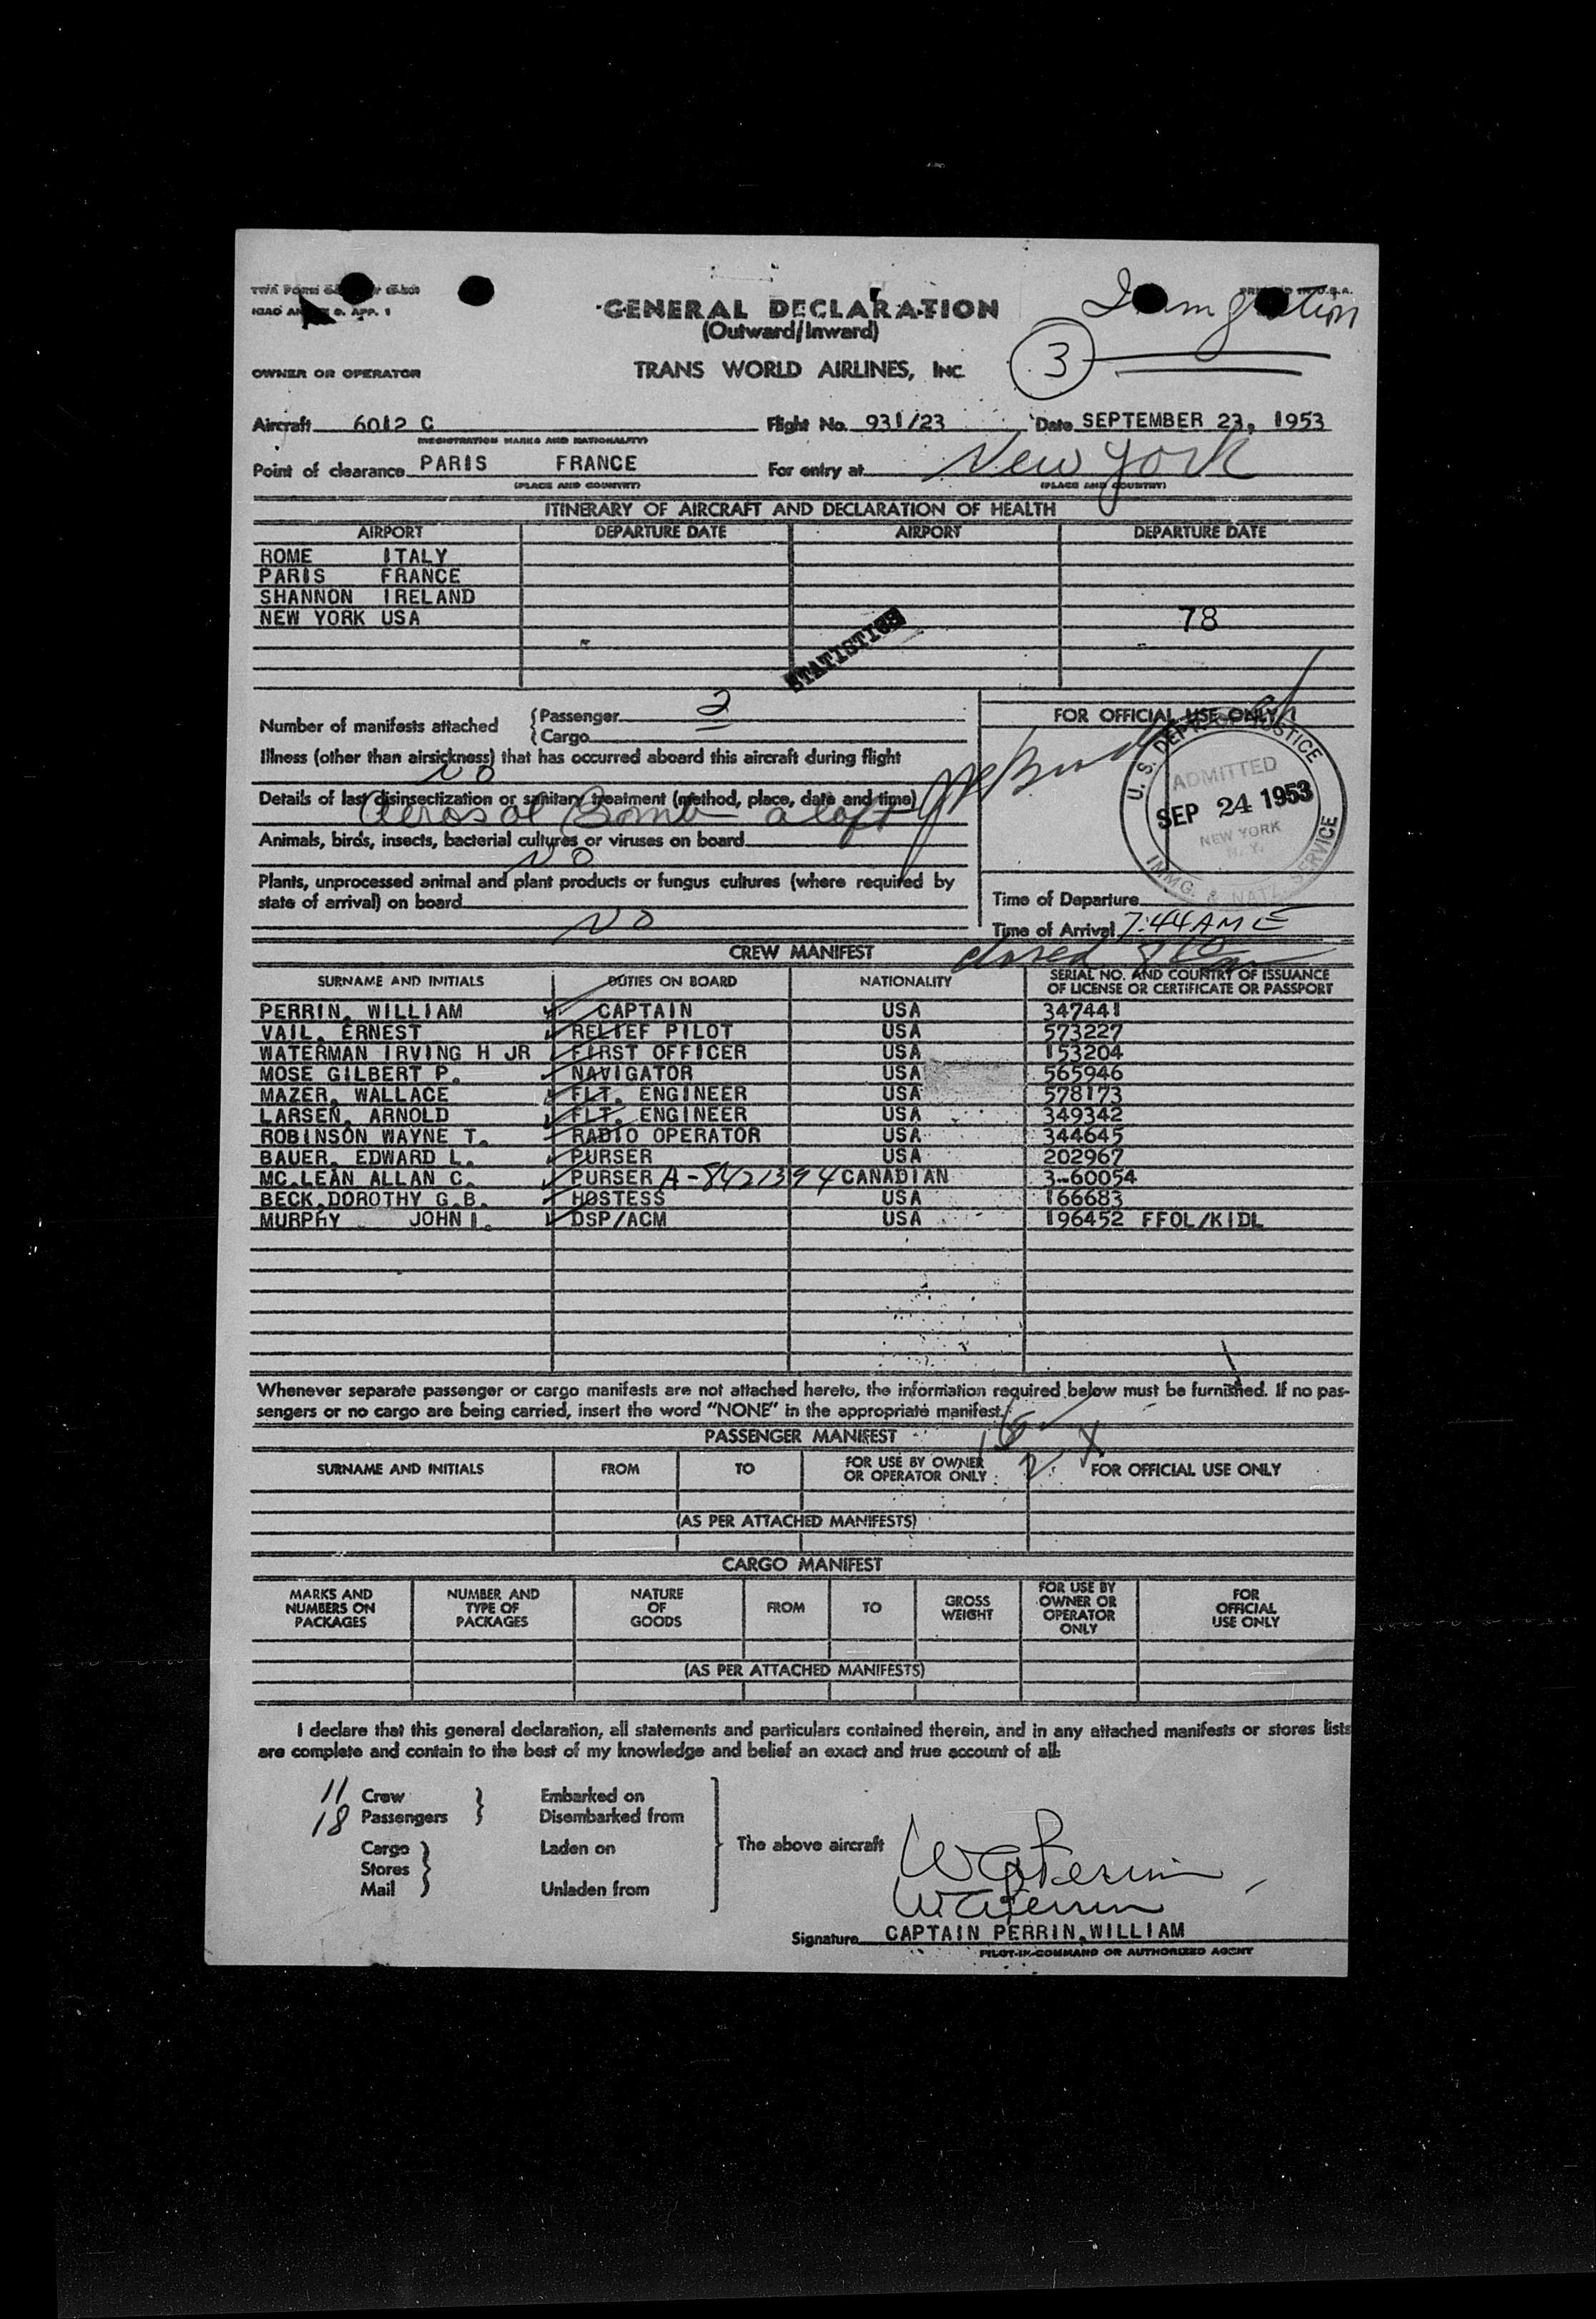 GENERAL DECLARATION
(Outward/Inward)
TRANS WORLD AIRLINES, INC.
3
OWNER OR OPERATOR
Aircraft 6012 C Flight No. 931/23 Date SEPTEMBER 23, 1953
(REGISTRATION MARKS AND NATIONALITY)
Point of clearance PARIS FRANCE For entry at New York
(PLACE AND COUNTRY) (PLACE AND COUNTRY)
ITINERARY OF AIRCRAFT AND DECLARATION OF HEALTH
AIRPORT DEPARTURE DATE AIRPORT DEPARTURE DATE
ROME ITALY
PARIS FRANCE
SHANNON IRELAND
NEW YORK USA 78
STATISTICS
Number of manifests attached Passenger 2
Cargo
FOR OFFICIAL USE ONLY
Illness (other than airsickness) that has occurred aboard this aircraft during flight
NO
Details of last disinsectization or sanitary treatment (method, place, date and time)
Aerosol Bomb aloft
Animals, birds, insects, bacterial cultures or viruses on board
NO
Plants, unprocessed animal and plant products or fungus cultures (where required by
state of arrival) on board
NO
U.S. DEPT. OF JUSTICE
ADMITTED
SEP 24 1953
NEW YORK
N.Y.
IMMG. & NATZ. SERVICE
Time of Departure
Time of Arrival 7:44 AM E
closed
CREW MANIFEST
SURNAME AND INITIALS DUTIES ON BOARD NATIONALITY SERIAL NO. AND COUNTRY OF ISSUANCE OF LICENSE OR CERTIFICATE OR PASSPORT
PERRIN, WILLIAM CAPTAIN USA 347441
VAIL, ERNEST RELIEF PILOT USA 573227
WATERMAN IRVING H JR FIRST OFFICER USA 153204
MOSE GILBERT P. NAVIGATOR USA 565946
MAZER, WALLACE FLT. ENGINEER USA 578173
LARSEN, ARNOLD FLT. ENGINEER USA 349342
ROBINSON WAYNE T. RADIO OPERATOR USA 344645
BAUER, EDWARD L. PURSER USA 202967
MC.LEAN ALLAN C. PURSER A-8421394 CANADIAN 3-60054
BECK,DOROTHY G.B. HOSTESS USA 166683
MURPHY JOHN I. DSP/ACM USA 196452 FFOL/KIDL
Whenever separate passenger or cargo manifests are not attached hereto, the information required below must be furnished. If no pas-
sengers or no cargo are being carried, insert the word "NONE" in the appropriate manifest.
PASSENGER MANIFEST
SURNAME AND INITIALS FROM TO FOR USE BY OWNER OR OPERATOR ONLY FOR OFFICIAL USE ONLY
(AS PER ATTACHED MANIFESTS)
CARGO MANIFEST
MARKS AND NUMBERS ON PACKAGES NUMBER AND TYPE OF PACKAGES NATURE OF GOODS FROM TO GROSS WEIGHT FOR USE BY OWNER OR OPERATOR ONLY FOR OFFICIAL USE ONLY
(AS PER ATTACHED MANIFESTS)
I declare that this general declaration, all statements and particulars contained therein, and in any attached manifests or stores lists
are complete and contain to the best of my knowledge and belief an exact and true account of all:
11 Crew Embarked on
18 Passengers Disembarked from
Cargo Laden on The above aircraft
Stores
Mail Unladen from
WAPerrin
WAPerrin
Signature CAPTAIN PERRIN,WILLIAM
PILOT-IN-COMMAND OR AUTHORIZED AGENT